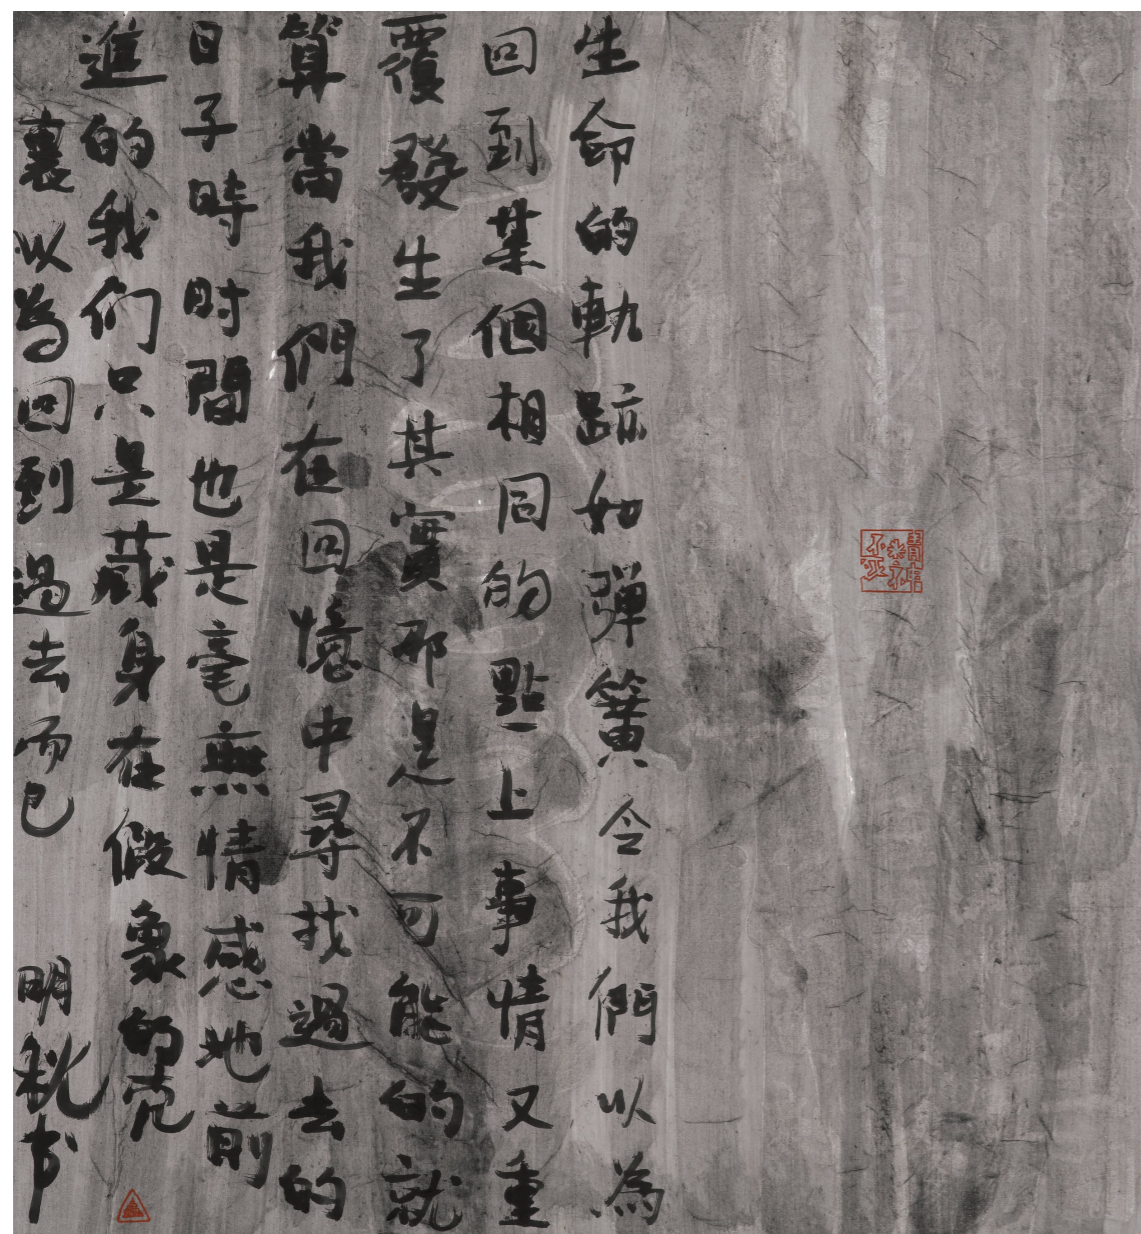 生命的軌跡如彈簧令我們以為
回到某個相同的點上事情又重
覆發生了其實那是不可能的就
算當我們在回憶中尋找過去的
日子時时間也是毫無情感地前
進的我们只是藏身在假象的壳
裏以為回到過去而已
明秋书